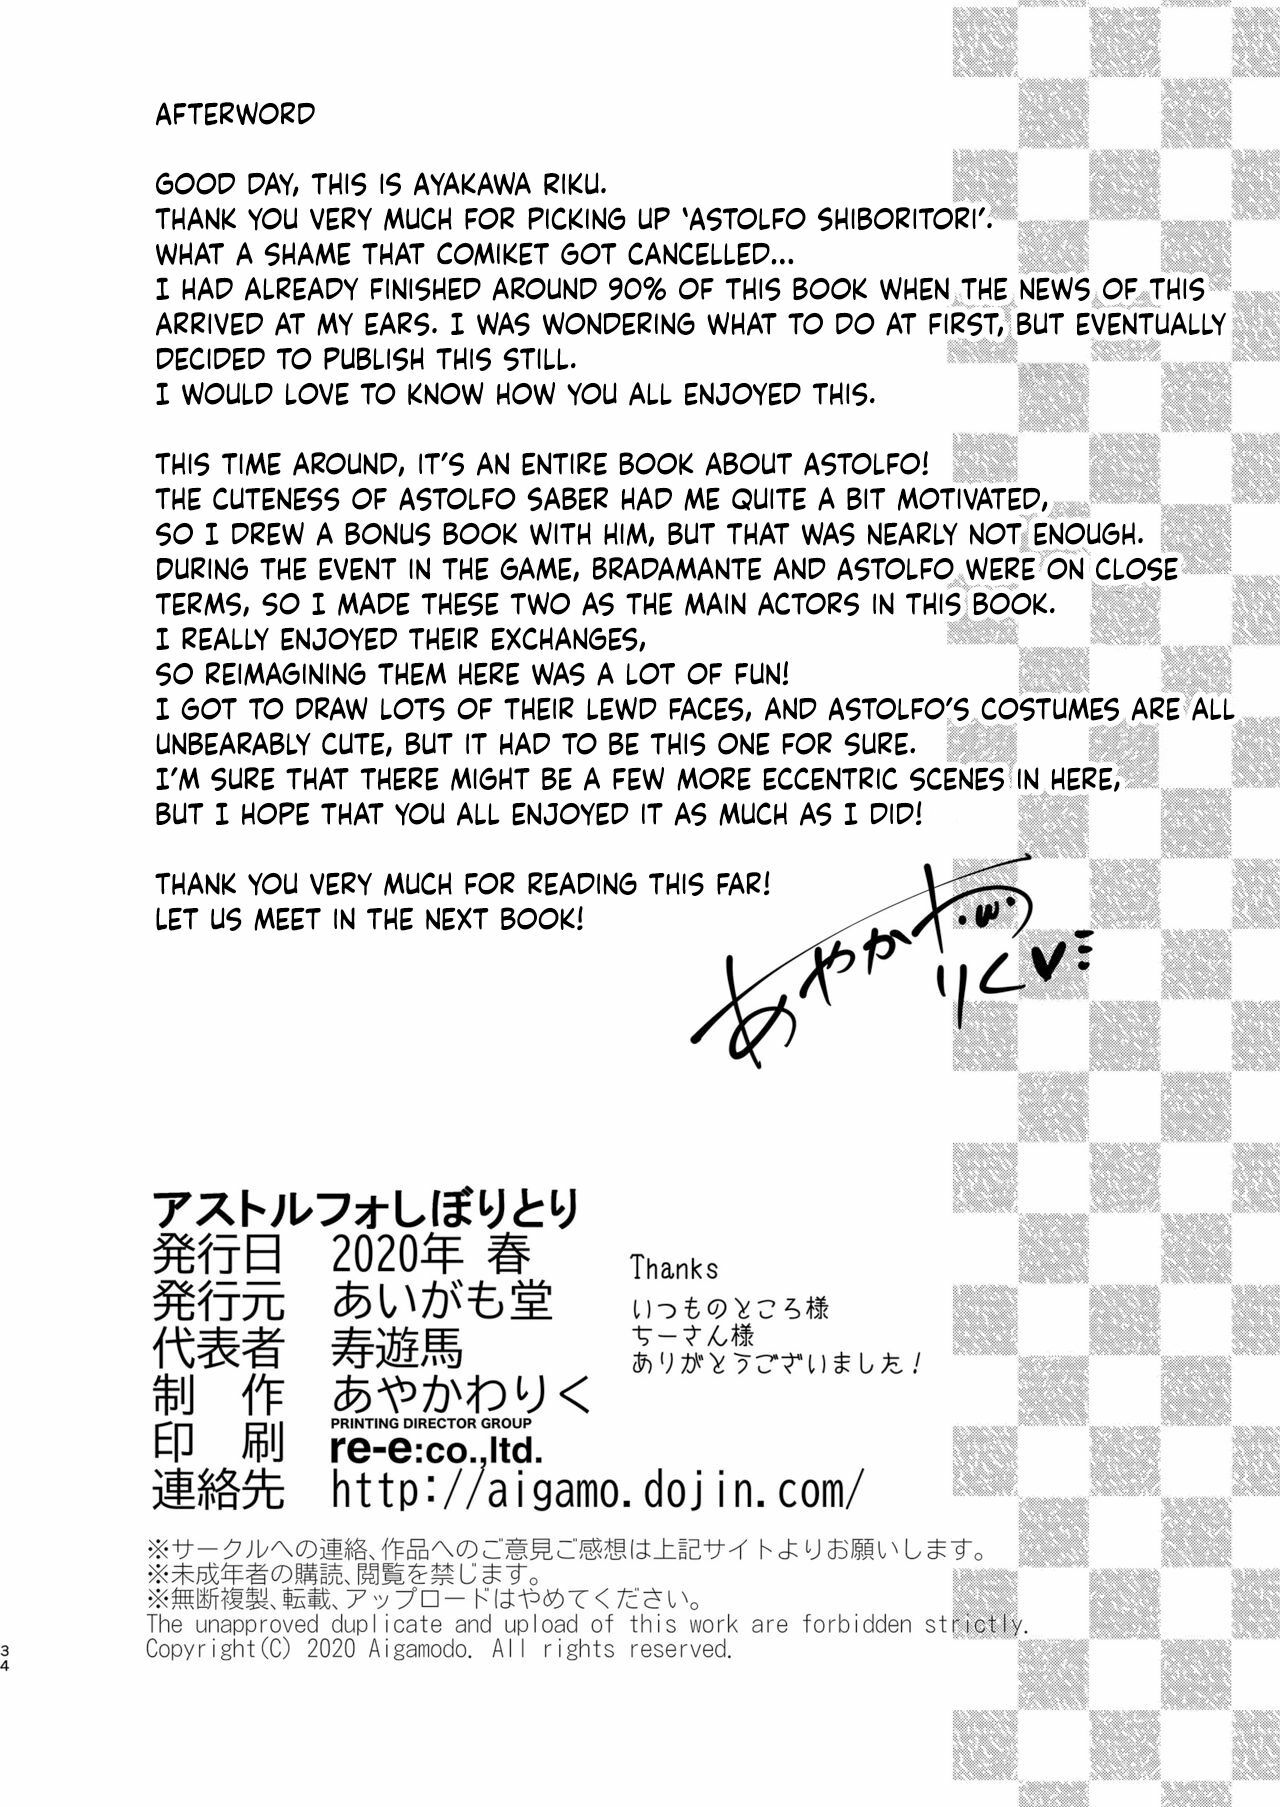 AFTERWORD
GOOD DAY, THIS IS AYAKAWA RIKU.
THANK YOU VERY MUCH FOR PICKING UP ‘ASTOLFO SHIBORITORI’.
WHAT A SHAME THAT COMIKET GOT CANCELLED...
I HAD ALREADY FINISHED AROUND 90% OF THIS BOOK WHEN THE NEWS OF THIS
ARRIVED AT MY EARS. I WAS WONDERING WHAT TO DO AT FIRST, BUT EVENTUALLY
DECIDED TO PUBLISH THIS STILL.
I WOULD LOVE TO KNOW HOW YOU ALL ENJOYED THIS.
THIS TIME AROUND, IT’S AN ENTIRE BOOK ABOUT ASTOLFO!
THE CUTENESS OF ASTOLFO SABER HAD ME QUITE A BIT MOTIVATED,
SO I DREW A BONUS BOOK WITH HIM, BUT THAT WAS NEARLY NOT ENOUGH.
DURING THE EVENT IN THE GAME, BRADAMANTE AND ASTOLFO WERE ON CLOSE
TERMS, SO I MADE THESE TWO AS THE MAIN ACTORS IN THIS BOOK.
I REALLY ENJOYED THEIR EXCHANGES,
SO REIMAGINING THEM HERE WAS A LOT OF FUN!
I GOT TO DRAW LOTS OF THEIR LEWD FACES, AND ASTOLFO’S COSTUMES ARE ALL
UNBEARABLY CUTE, BUT IT HAD TO BE THIS ONE FOR SURE.
I’M SURE THAT THERE MIGHT BE A FEW MORE ECCENTRIC SCENES IN HERE,
BUT I HOPE THAT YOU ALL ENJOYED IT AS MUCH AS I DID!
THANK YOU VERY MUCH FOR READING THIS FAR!
LET US MEET IN THE NEXT BOOK!
あやかわ
りく
アストルフォしぼりとり
発行日 2020年 春
発行元 あいがも堂
代表者 寿遊馬
制 作 あやかわりく
印 刷 PRINTING DIRECTOR GROUP
re-e:co.,ltd.
連絡先 http://aigamo.dojin.com/
Thanks
いつものところ様
ちーさん様
ありがとうございました!
※サークルへの連絡、作品へのご意見ご感想は上記サイトよりお願いします。
※未成年者の購読、閲覧を禁じます。
※無断複製、転載、アップロードはやめてください。
The unapproved duplicate and upload of this work are forbidden strictly.
Copyright(C) 2020 Aigamodo. All rights reserved.
34